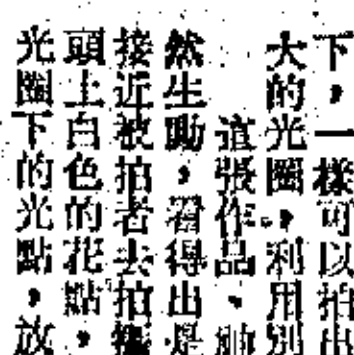 下，一樣可以拍出
大的光圈，利用別
這張作品、
然生動，看得出是
接近被拍者去拍攝
頭上白色的花點，
光圈下的光點，放